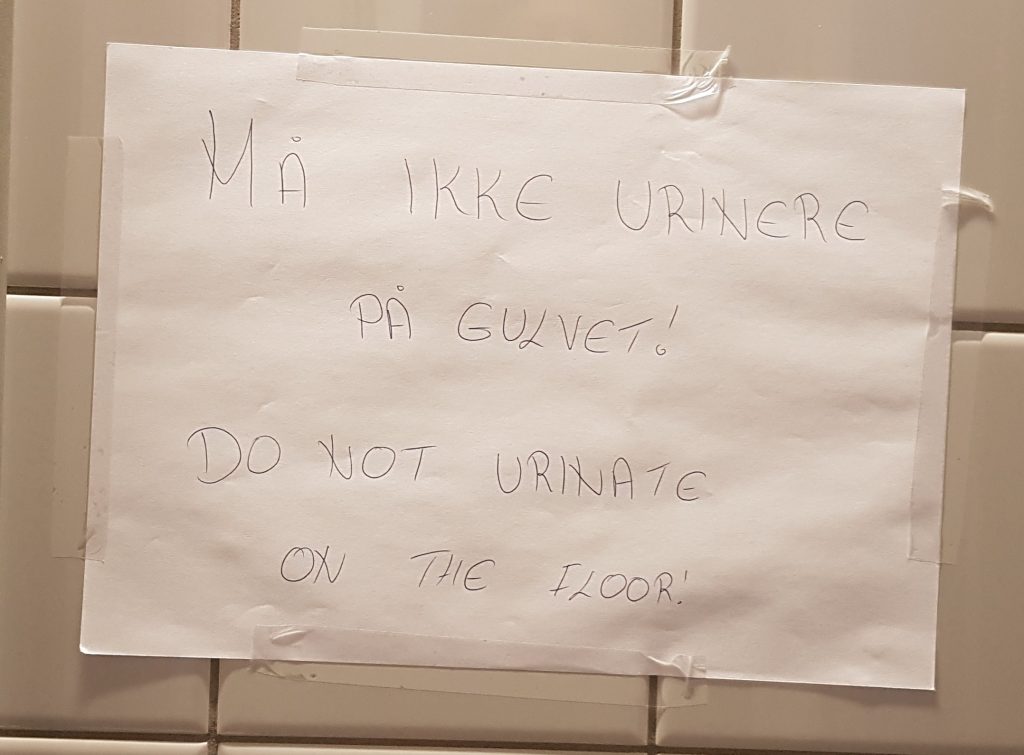 MÅ IKKE URINERE
PÅ GULVET!
DO NOT URINATE
ON THE FLOOR!